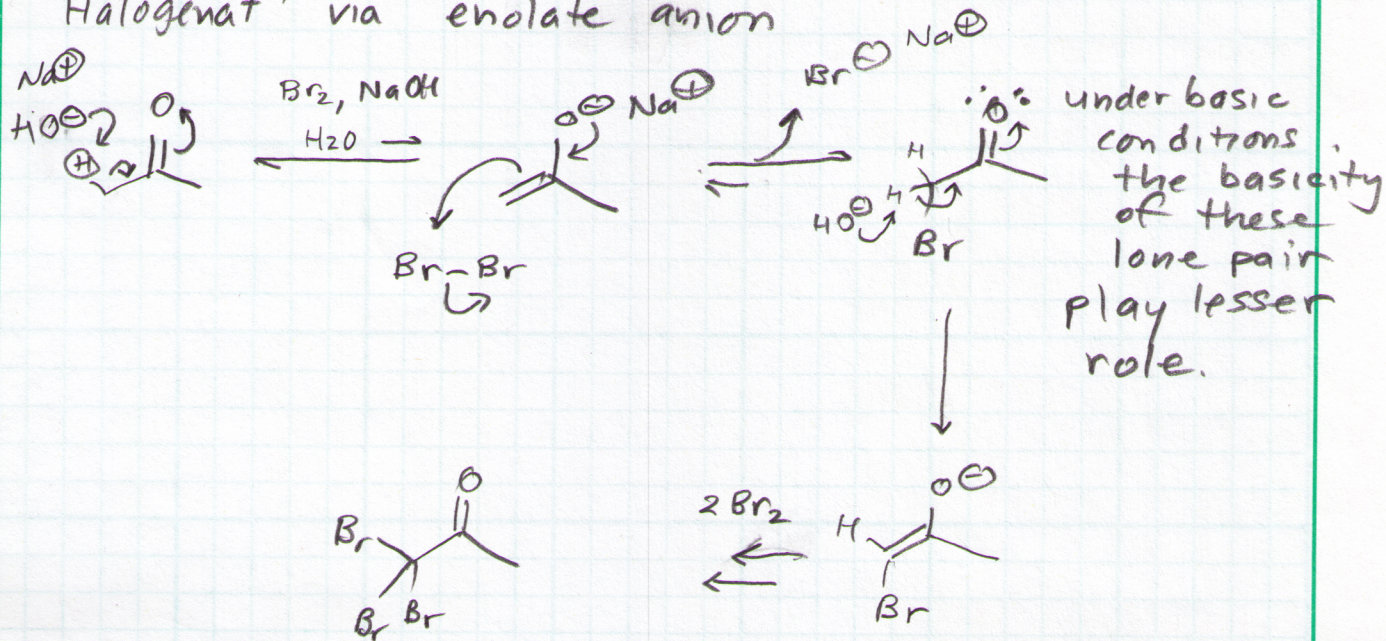 Halogenat' via enolate anion
Na⊕
HO⊖
H
O
Br2, NaOH
H2O
O⊖ Na⊕
Br-Br
Br⊖ Na⊕
O
H
H
HO⊖
Br
under basic
conditions,
the basicity
of these
lone pair
play lesser
role.
O
Br
Br Br
2 Br2
O⊖
H
Br